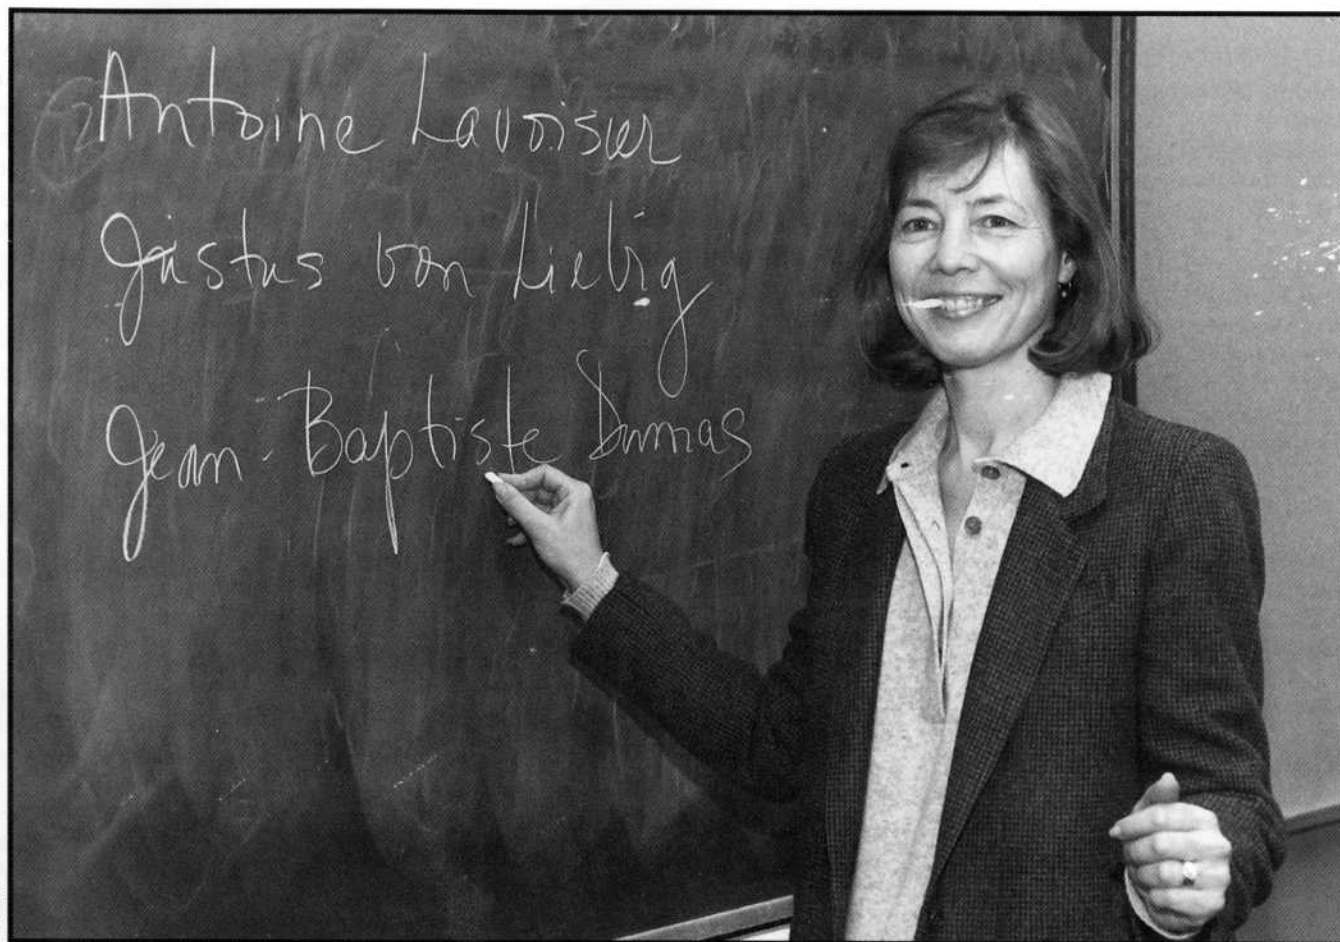 Antoine Lavoisier
Justus von Liebig
Jean-Baptiste Dumas